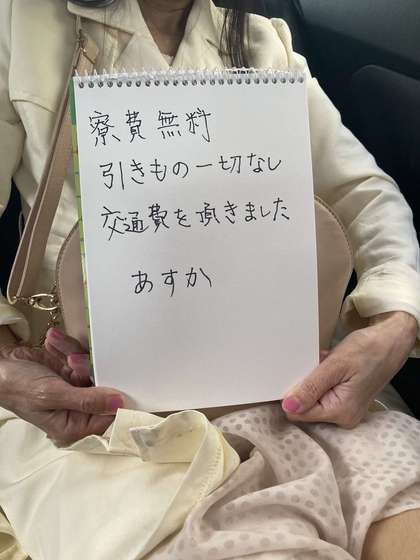 寮費無料
引きもの一切なし
交通費を頂きました
あすか